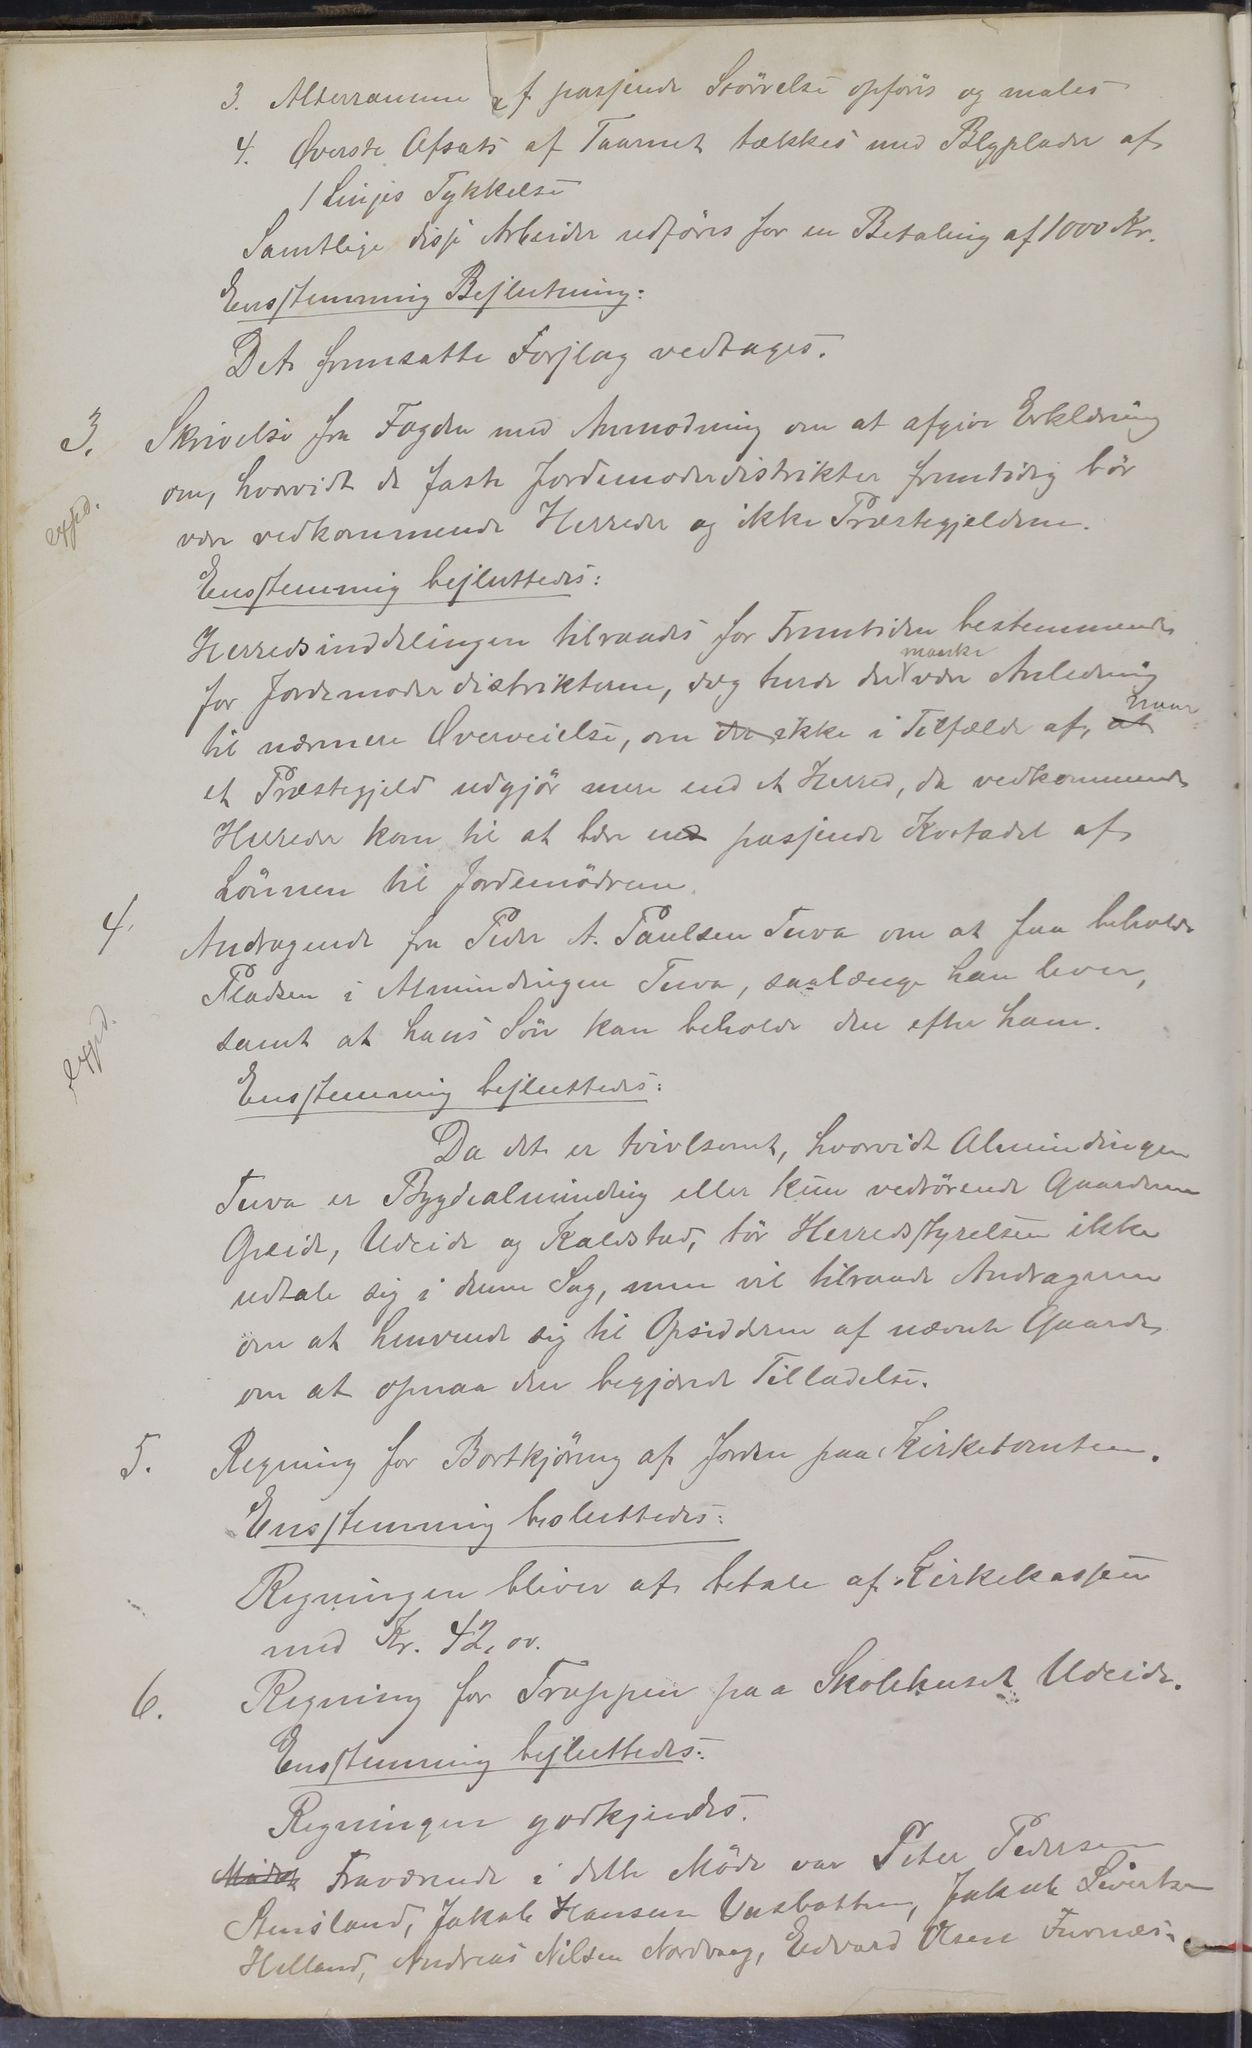 3. Alterramme af passende Størrelse opføres og males
4. Øverste Afsats af Taarnet tækkes med Blyplader af
1 Linjes Tykkelse
Samtlige disse Arbeider udføres for en Betaling af 1000 Kr.
Enstemmig Beslutning:
Det fremsatte Forslag vedtages.
3. Skrivelse fra Fogden med Anmodning om at afgive Erklæring
om, hvorvidt de faste Jordemoderdistrikter fremtidig bør
være vedkommende Herreder og ikke Præstegjeldene.
expd.
Enstemmig besluttedes:
Herredsinddelingen tilraades for Fremtiden bestemmende
for Jordemoderdistrikterne, dog turde der maaske være Anledning
til nærmere Overveielse, om der ikke i Tilfælde af, at naar
et Præstegjeld udgjør mere end et Herred, da vedkommende
Herreder kom til at bære en passende Kvotadel af
Lønnen til Jordemødrene.
4. Andragende fra Peder A. Paulsen Tuva om at faa beholde
Pladsen i Almindingen Tuva, saalænge han lever,
samt at hans Søn kan beholde den efter ham.
expd.
Enstemmig besluttedes:
Da det er tvivlsomt, hvorvidt Almindingen
Tuva er Bygdealminding eller kun vedrørende Gaardene
Greide, Udeide og Kaldstad, tør Herredsstyrelsen ikke
udtale sig i denne Sag, men vil tilraade Andrageren
om at henvende sig til Opsidderne af nævnte Gaarde
om at opnaa den begjærede Tilladelse.
5. Regning for Bortkjøring af Jorden paa Kirketomten.
Enstemmig besluttedes:
Regningen bliver at betale af Kirkekassen
med Kr. 42,00.
6. Regning for Trappen paa Skolehuset Udeide.
Enstemmig besluttedes:
Regningen godkjendes.
Mødet Fraværende i dette Møde var Peter Pedersen
Stensland, Jakob Hansen Vasbotten, Jakob Sivertsen
Helland, Andreas Nilsen Nordvaag, Edvard Olsen Furnæs.